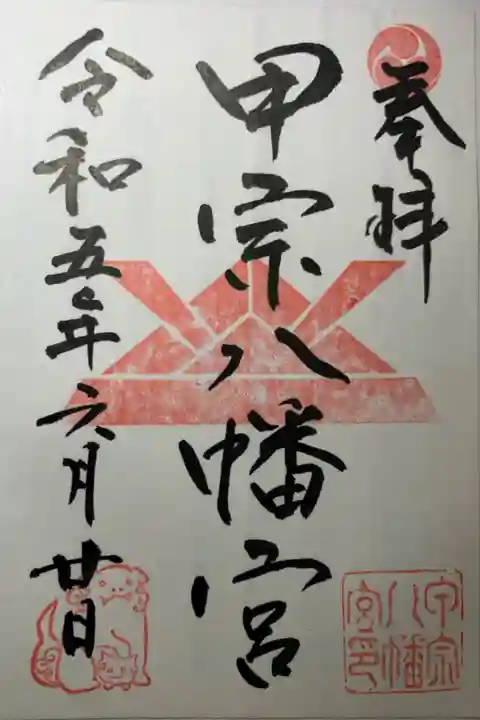 奉拝
甲宗八幡宮
令和五年六月廿日
甲宗八幡宮印